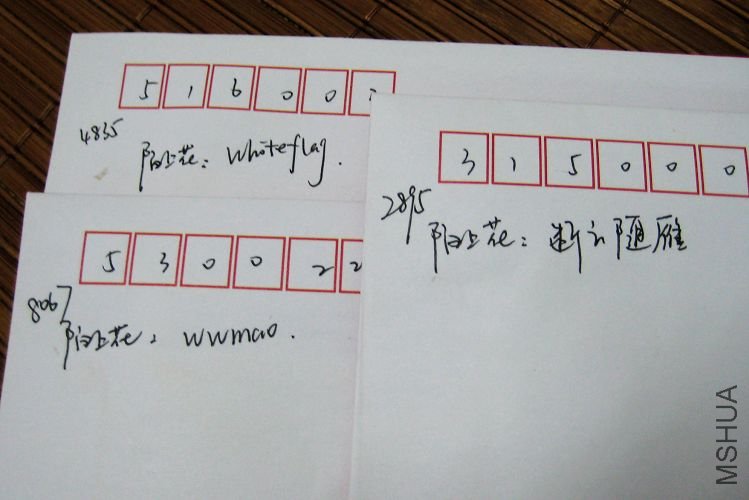 516000
4835
陌上花：whiteflag.
315000
2895
陌上花：断云随雁
530022
8067
陌上花：wwmao.
MSHUA